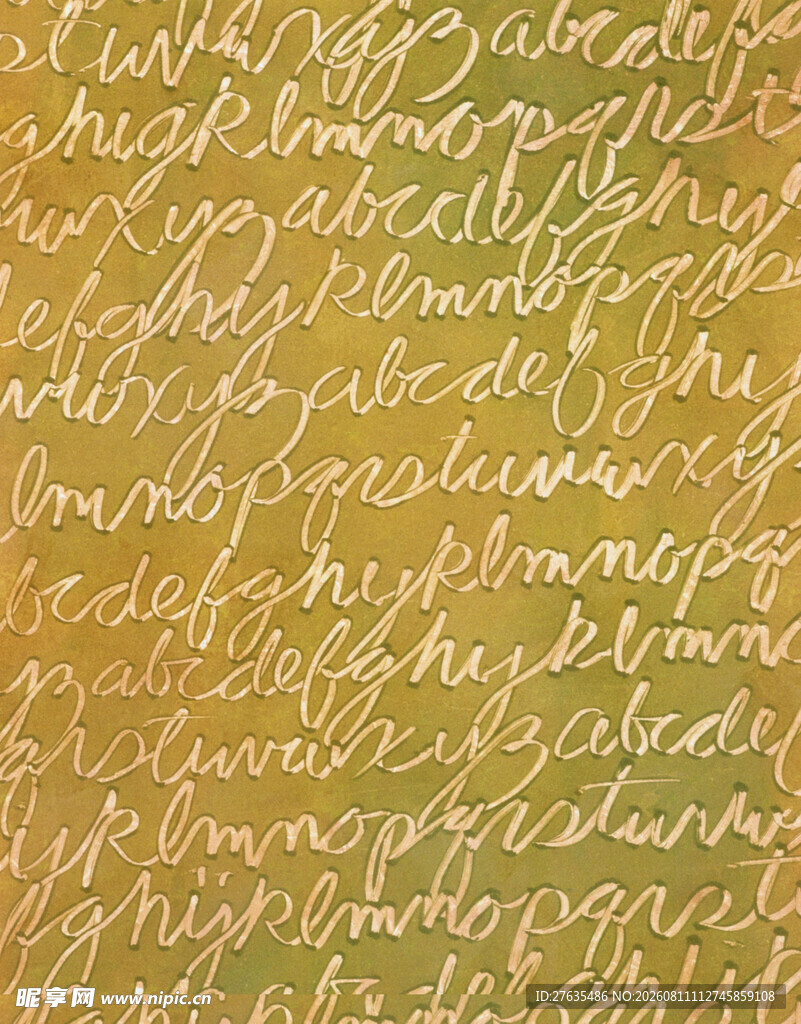 stuvwxyz abcdef
ghijklmnopqrst
uvwxyz abcdefghij
defghijklmnopqrs
uvwxyz abcdefghij
lmnopqrstuvwxyz
bcdefghijklmnopq
yz abcdefghijklmn
qrstuvwxyz abcdef
ijklmnopqrstuvw
fghijklmnopqrst
昵享网 www.nipic.cn
ID:27635486 NO:20260811112745859108